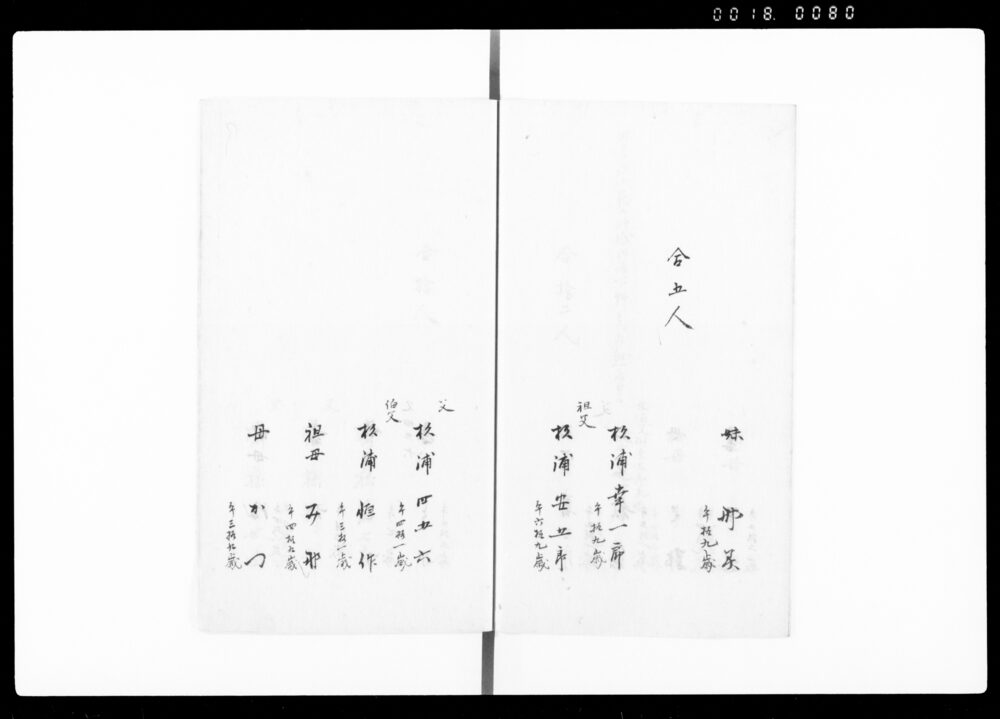 0018. 0080
妹 那美
年拾九歳
合五人
松浦幸一郎
年拾九歳
祖父
松浦安五郎
年六拾九歳
父
松浦四五六
年四拾一歳
伯父
松浦恒作
年三拾一歳
祖母 み那
年四拾九歳
母 かつ
年三拾九歳